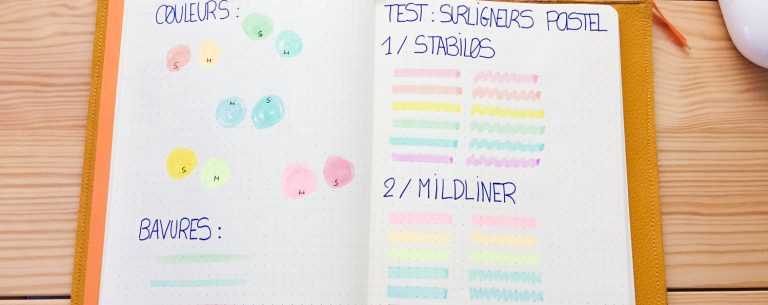 COULEURS :
S
M
S
M
M
S
S
M
M
S
BAVURES :
TEST : SURLIGNEURS PASTEL
1 / STABILOS
2 / MILDLINER